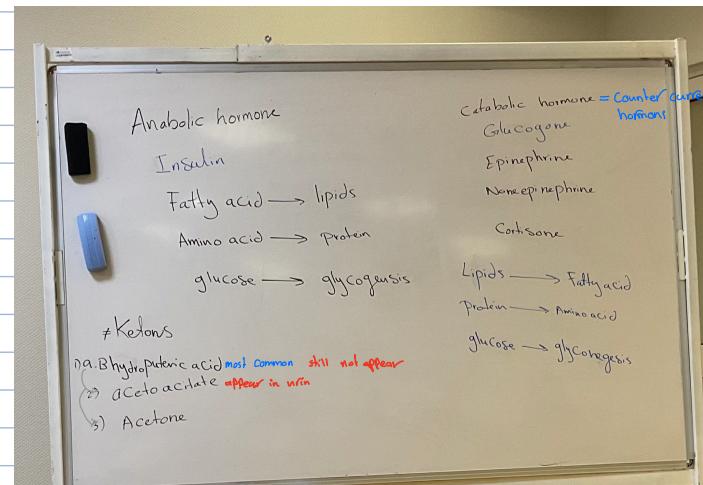 Anabolic hormone
Insulin
Fatty acid → lipids
Amino acid → protein
glucose → glycogensis
≠ Ketons
1) a. B hydroputeric acid most common still not appear
2) aceto acitate appear in urin
3) Acetone
Catabolic hormone = Counter curre
hormons
Glucogone
Epinephrine
Noneepinephrine
Cortisone
Lipids → Fatty acid
Protein → Amino acid
glucose → glyconegesis